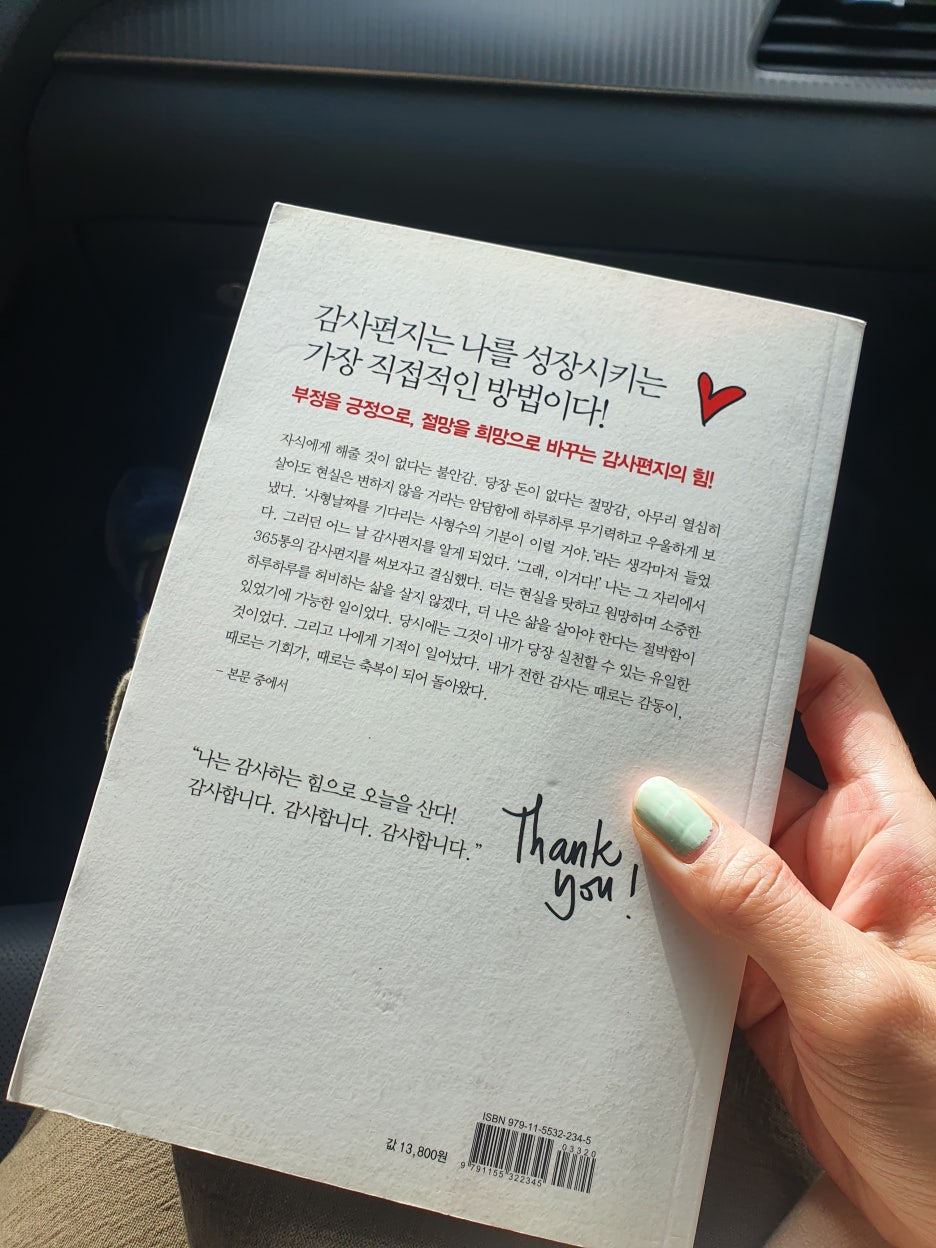 감사편지는 나를 성장시키는
가장 직접적인 방법이다!
부정을 긍정으로, 절망을 희망으로 바꾸는 감사편지의 힘!
자식에게 해줄 것이 없다는 불안감. 당장 돈이 없다는 절망감, 아무리 열심히
살아도 현실은 변하지 않을 거라는 암담함에 하루하루 무기력하고 우울하게 보
냈다. ‘사형날짜를 기다리는 사형수의 기분이 이럴 거야.’라는 생각마저 들었
다. 그러던 어느 날 감사편지를 알게 되었다. ‘그래, 이거다!’ 나는 그 자리에서
365통의 감사편지를 써보자고 결심했다. 더는 현실을 탓하고 원망하며 소중한
하루하루를 허비하는 삶을 살지 않겠다, 더 나은 삶을 살아야 한다는 절박함이
있었기에 가능한 일이었다. 당시에는 그것이 내가 당장 실천할 수 있는 유일한
것이었다. 그리고 나에게 기적이 일어났다. 내가 전한 감사는 때로는 감동이,
때로는 기회가, 때로는 축복이 되어 돌아왔다.
- 본문 중에서
“나는 감사하는 힘으로 오늘을 산다!
감사합니다. 감사합니다. 감사합니다.”
Thank
you!
ISBN 979-11-5532-234-5
03320
값 13,800원
9 791155 322345